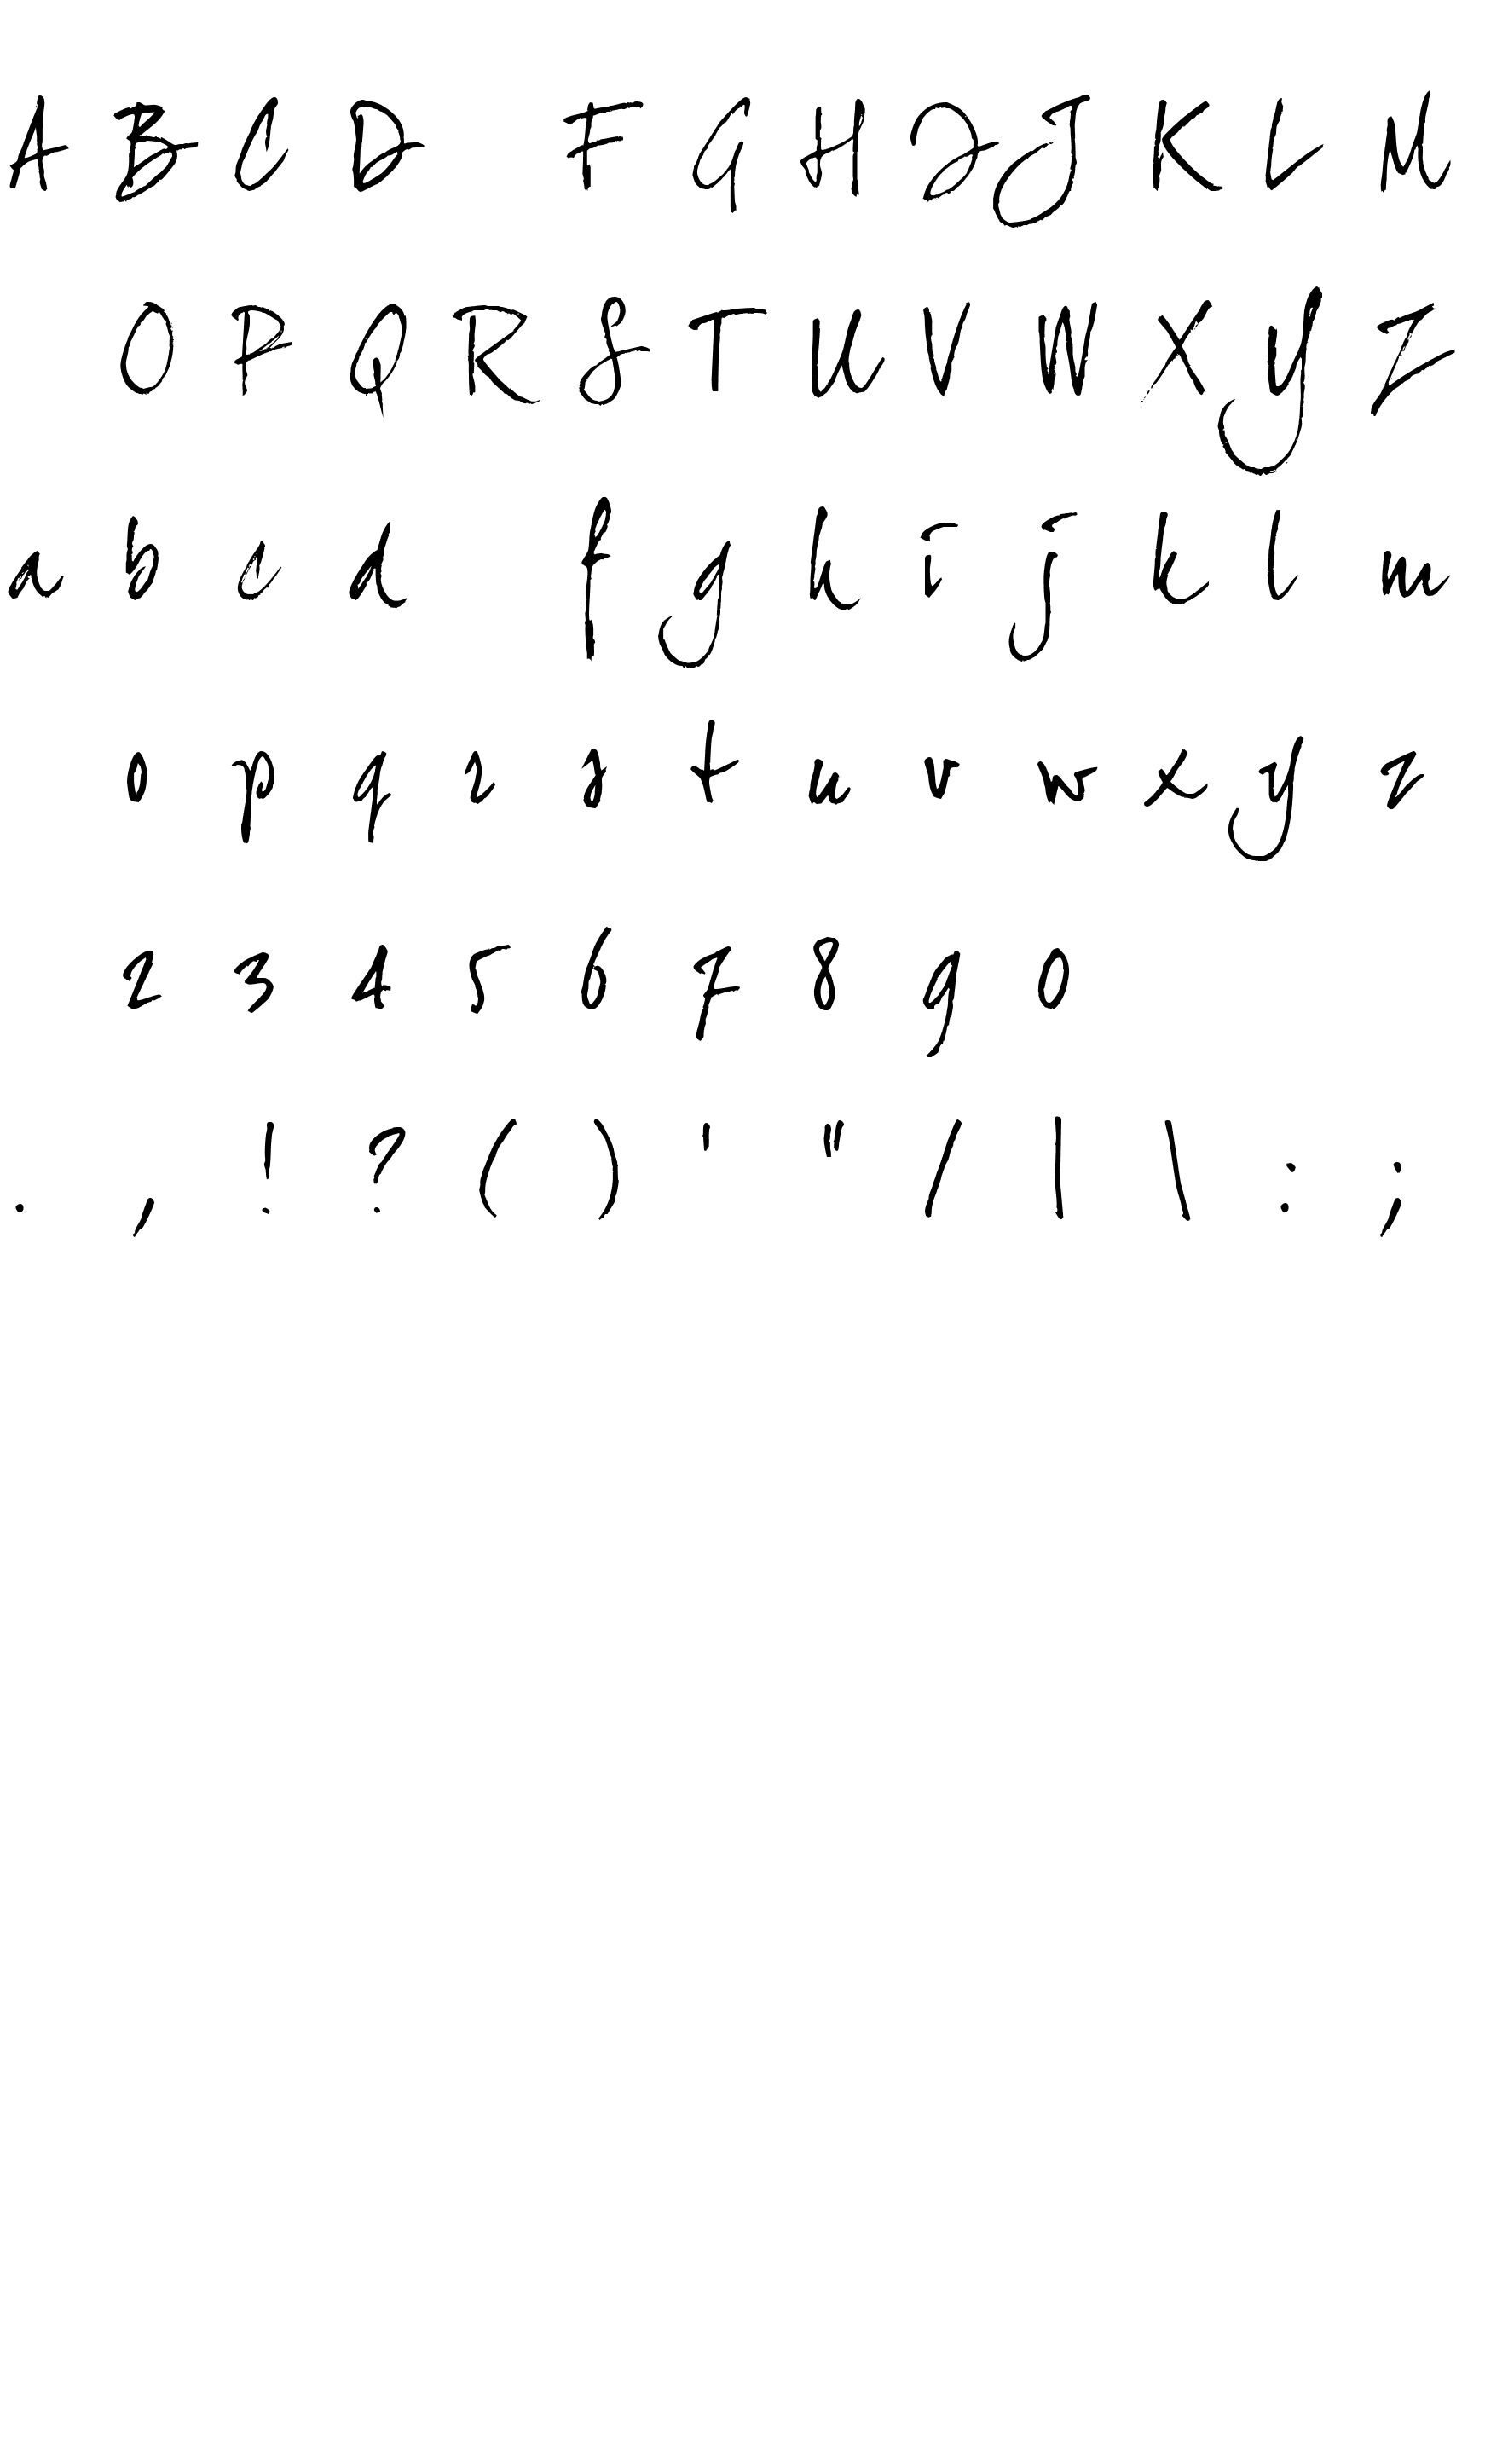 A B C D F G H I J K L M
O P Q R S T U V W X Y Z
a b c d f g h i j k l m
o p q r s t u v w x y z
2 3 4 5 6 7 8 9 0
. , ! ? ( ) ' " / | \ : ;